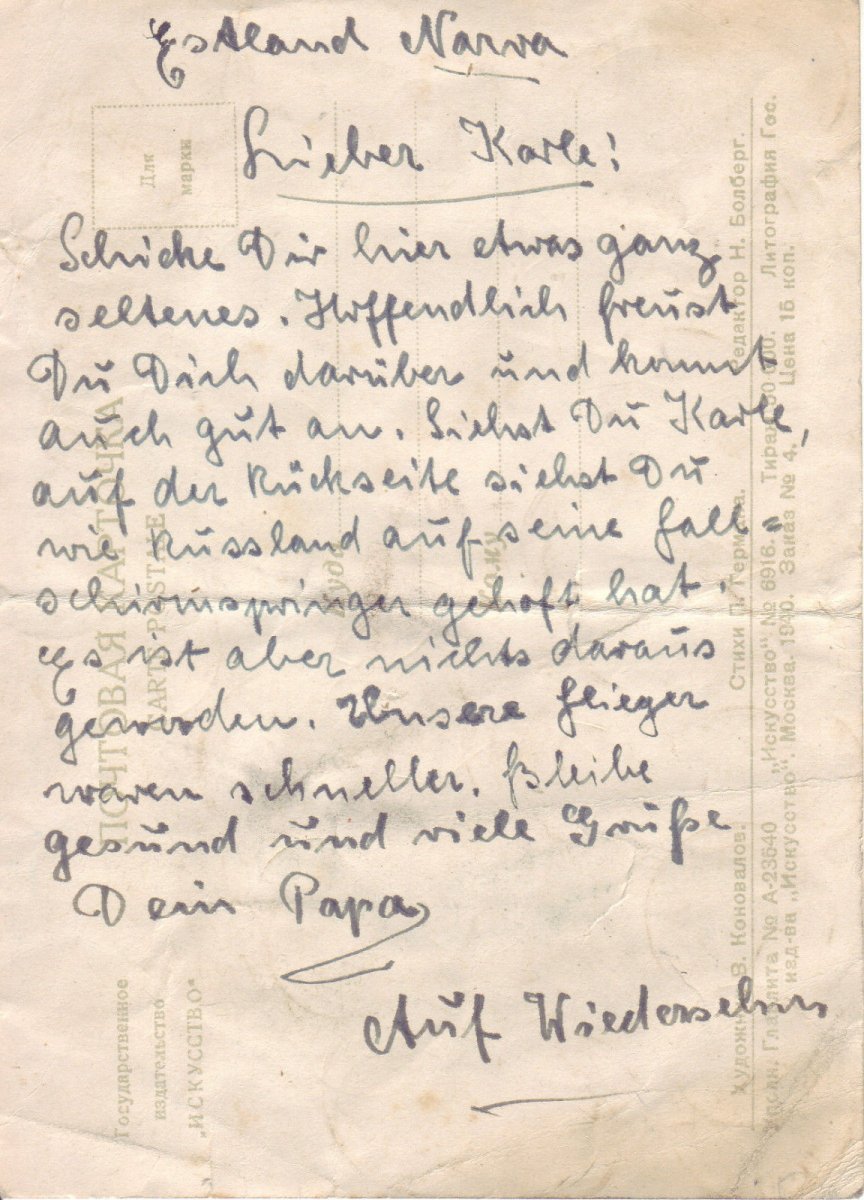 Estland Narva
Lieber Karle!
Schicke Dir hier etwas ganz
seltenes. Hoffendlich freust
Du Dich darüber und kommt
auch gut an. Siehst Du Karle,
auf der Rückseite siehst Du
wie Russland auf seine Fall=
schirmspringer gehoft hat.
Es ist aber nichts daraus
geworden. Unsere Flieger
waren schneller. Bleibe
gesund und viele Grüße
Dein Papa
Auf Wiedersehen
Для
марки
ПОЧТОВАЯ КАРТОЧКА
CARTE POSTALE
Куда
Кому
Государственное
издательство
„ИСКУССТВО“
В. Коновалов. Стихи П. Германа. Редактор Н. Болберг.
№ А-23640 „Искусство“ № 6916. Литография Гос.
изд-ва „Искусство“. Москва. 1940. Заказ № 4. Цена 15 коп.